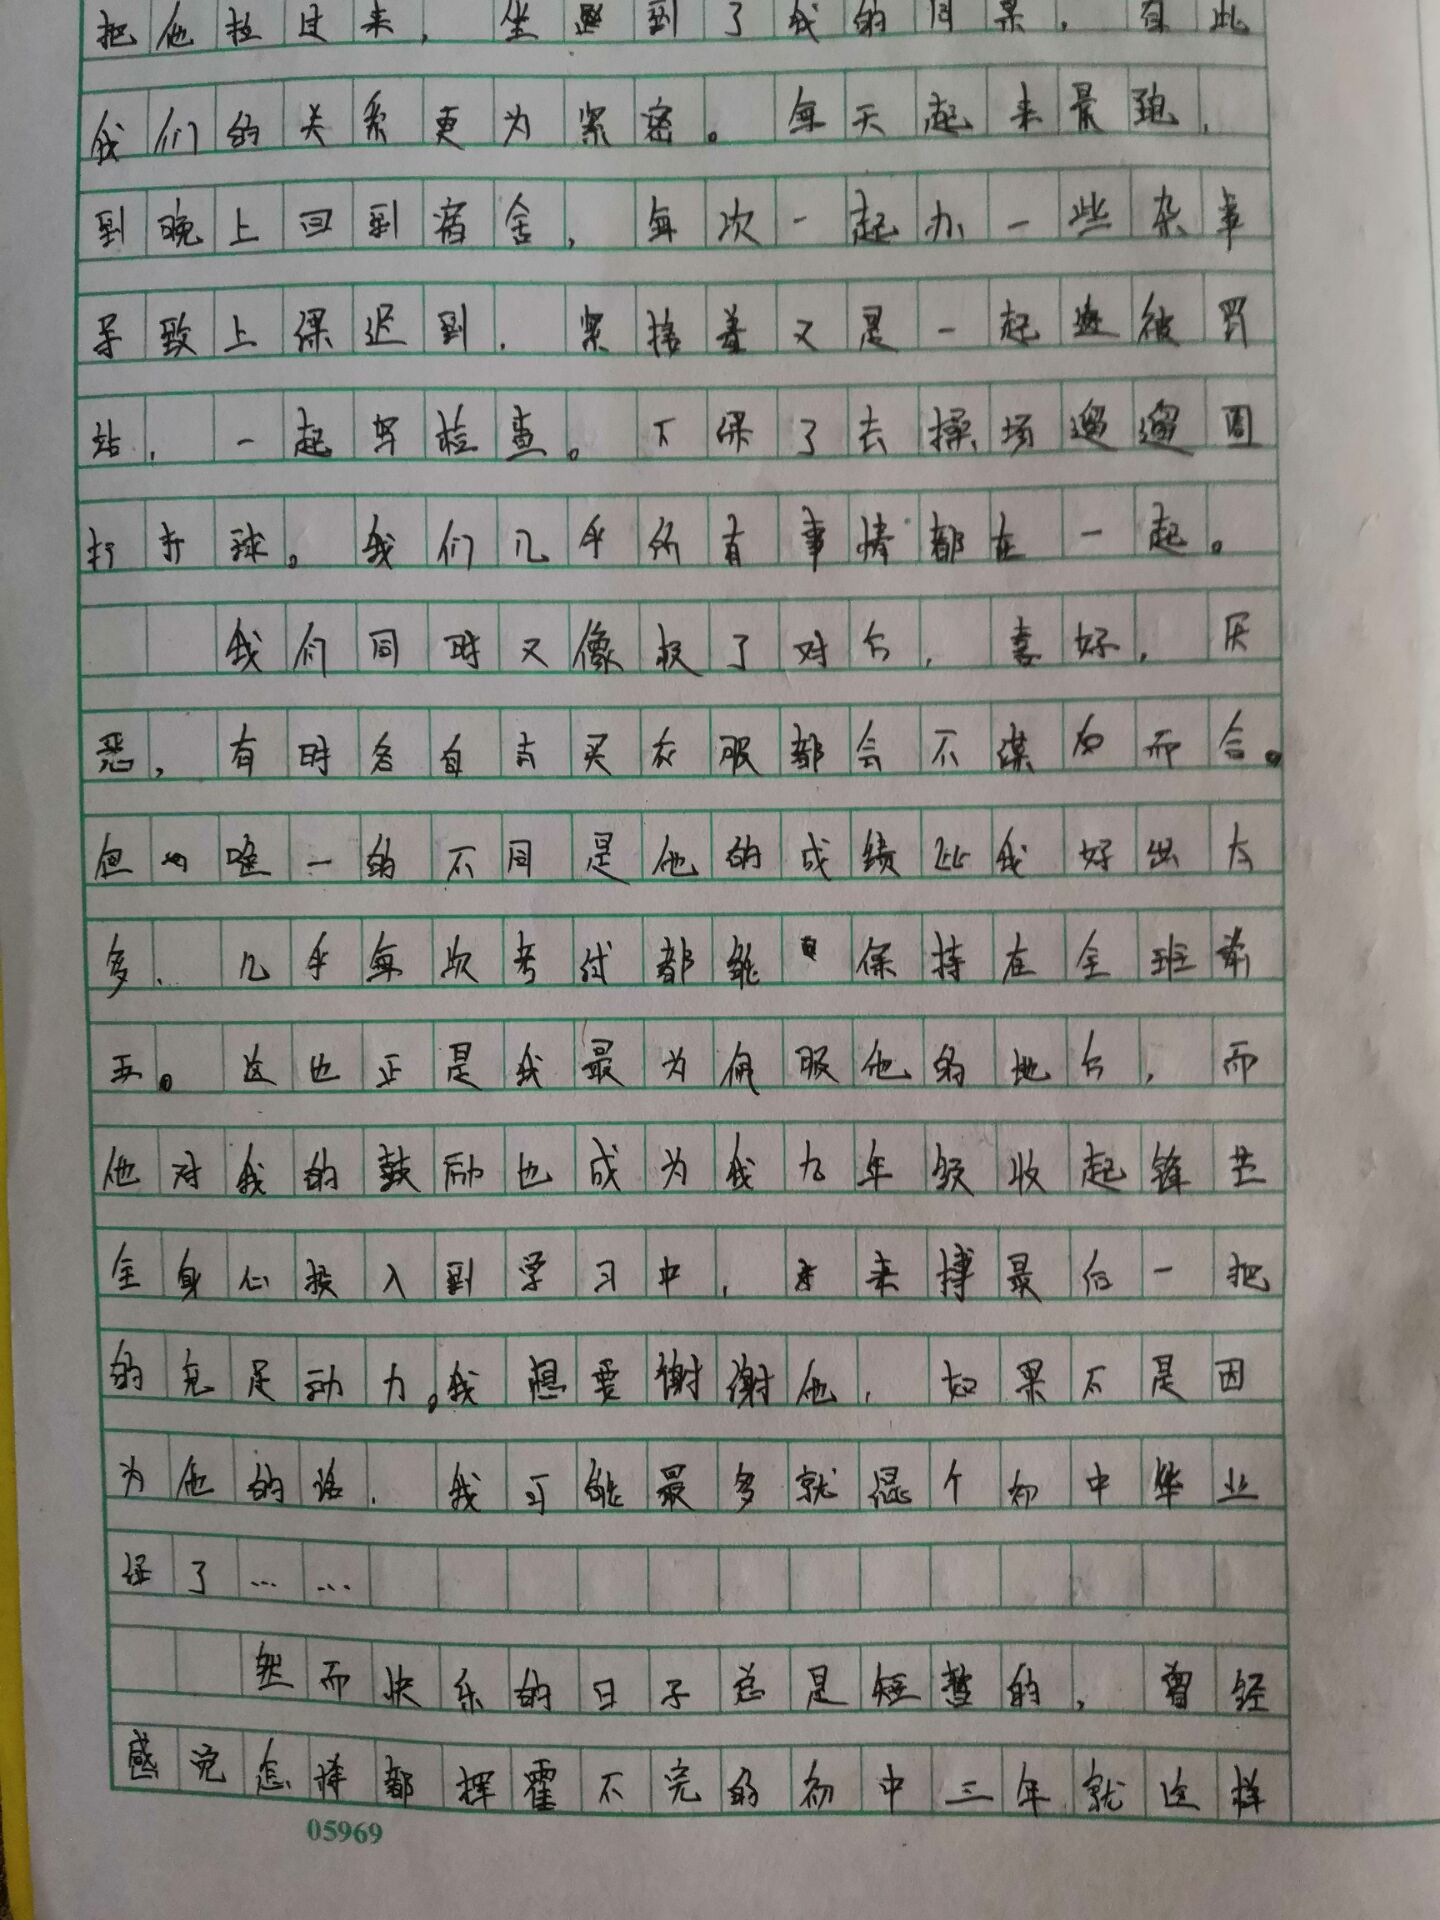 把他拉过来，坐到了我的同桌，自此
我们的关系更为紧密。每天起来晨跑，
到晚上回到宿舍，每次一起办一些杂事
导致上课迟到，紧接着又是一起被罚
站，一起写检查。下课了去操场遛遛圈
打打球。我们几乎所有事情都在一起。
我们同时又像极了对方，喜好，厌
恶，有时各自去买衣服都会不谋而合。
但唯一的不同是他的成绩比我好出太
多，几乎每次考试都能保持在全班前
五。这也正是我最为佩服他的地方，而
他对我的鼓励也成为我九年级收起锋芒
全身心投入到学习中，来搏最后一把
的充足动力。我想要谢谢他，如果不是因
为他的话，我可能最多就混个初中毕业
证了……
然而快乐的日子总是短暂的，曾经
感觉怎样都挥霍不完的初中三年就这样
05969